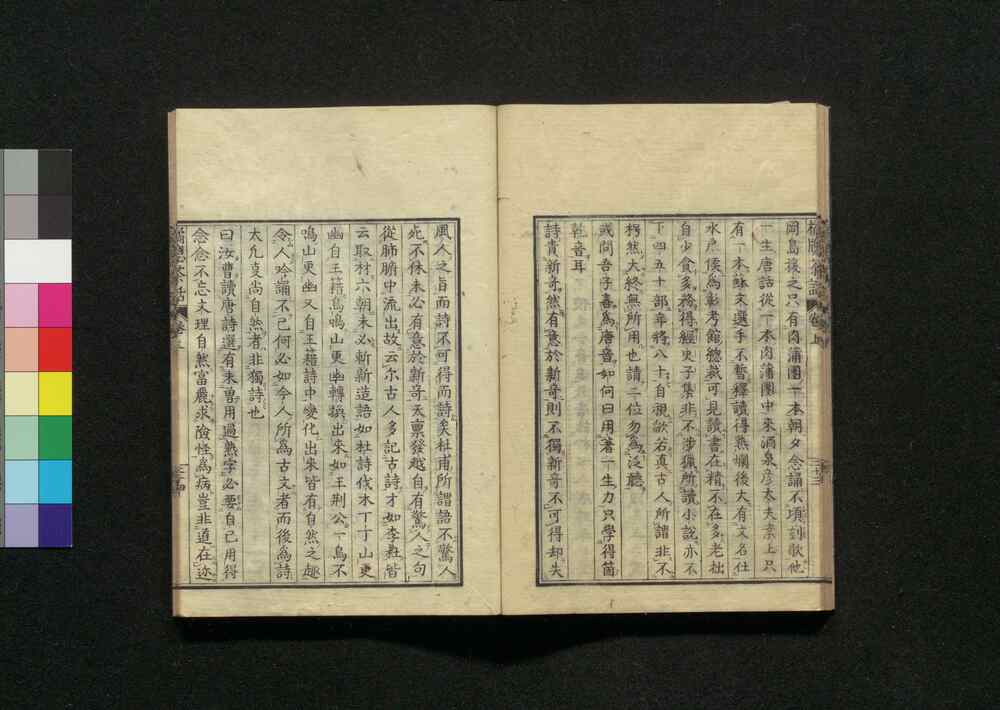 岡島援之只有肉蒲團一本朝夕念誦不頃刻歇他
一生唐話從一本肉蒲團中來酒泉彦太夫案上只
有一本蘇文選手不暫釋讀得熟爛後大有文名仕
水戶侯為彰考館總裁可見讀書在精不在多老拙
自少貪多務得經史子集非不涉獵所讀小說亦不
下四五十部年將八十自視欿若真古人所謂非不
枵然大終無所用也請二位勿為泛聽
或問吾子喜為唐音如何曰用著一生力只學得箇
乾音耳
詩貴新奇然有意於新奇則不獨新奇不可得却失
風人之旨而詩不可得而詩矣杜甫所謂語不驚人
死不休未必有意於新奇天稟發越自有驚人之句
從肺腑中流出故云尓古人多記古詩才如李杜皆
云取材六朝未必斬新造語如杜詩伐木丁丁山更
幽自王籍鳥鳴山更幽轉換出來如王荊公一鳥不
鳴山更幽又自王籍詩中變化出來皆有自然之趣
令人吟誦不已何必如今人所為古文者而後為詩
太凢文尚自然者非獨詩也
曰汝曹讀唐詩選有未曽用過熟字必要自己用得
念念不忘文理自然富麗求險怪為病豈非道在迩